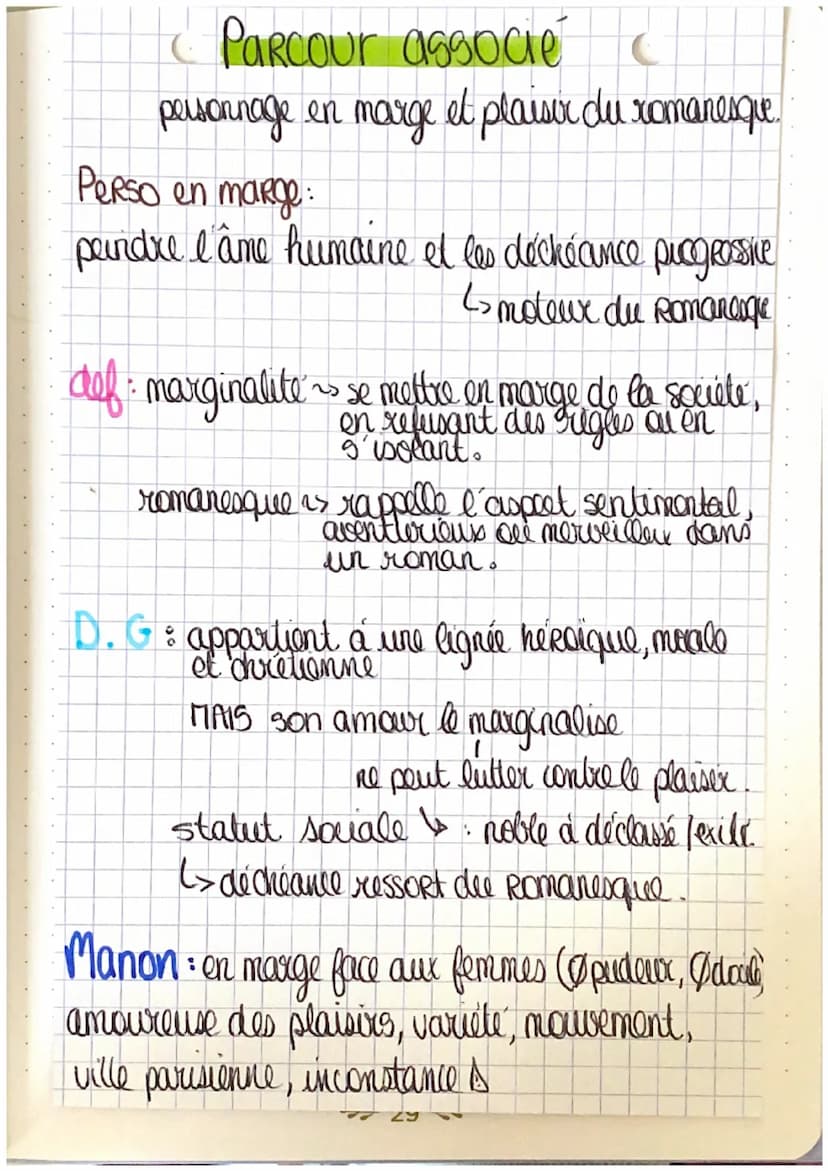 PARCOUR associé
personnage en marge et plaisir du romanesque.
PERSO en marge :
peindre l'âme humaine et les déchéance progressive
↳ moteur du Romanesque
def : marginalité ~> se mettre en marge de la société,
en refusant des règles ou en
s'isolant.
romanesque ~> rappelle l'aspect sentimental,
aventurieux ou merveilleux dans
un roman.
D.G : appartient à une lignée héroïque, morale
et chrétienne
MAIS son amour le marginalise
ne peut lutter contre le plaisir.
statut sociale ↘ : noble à déclassé / exilé.
↳ déchéance ressort du Romanesque.
Manon : en marge face aux femmes (Ø pudeur, Ø
amoureuse des plaisirs, variété, mouvement,
ville parisienne, inconstance
29